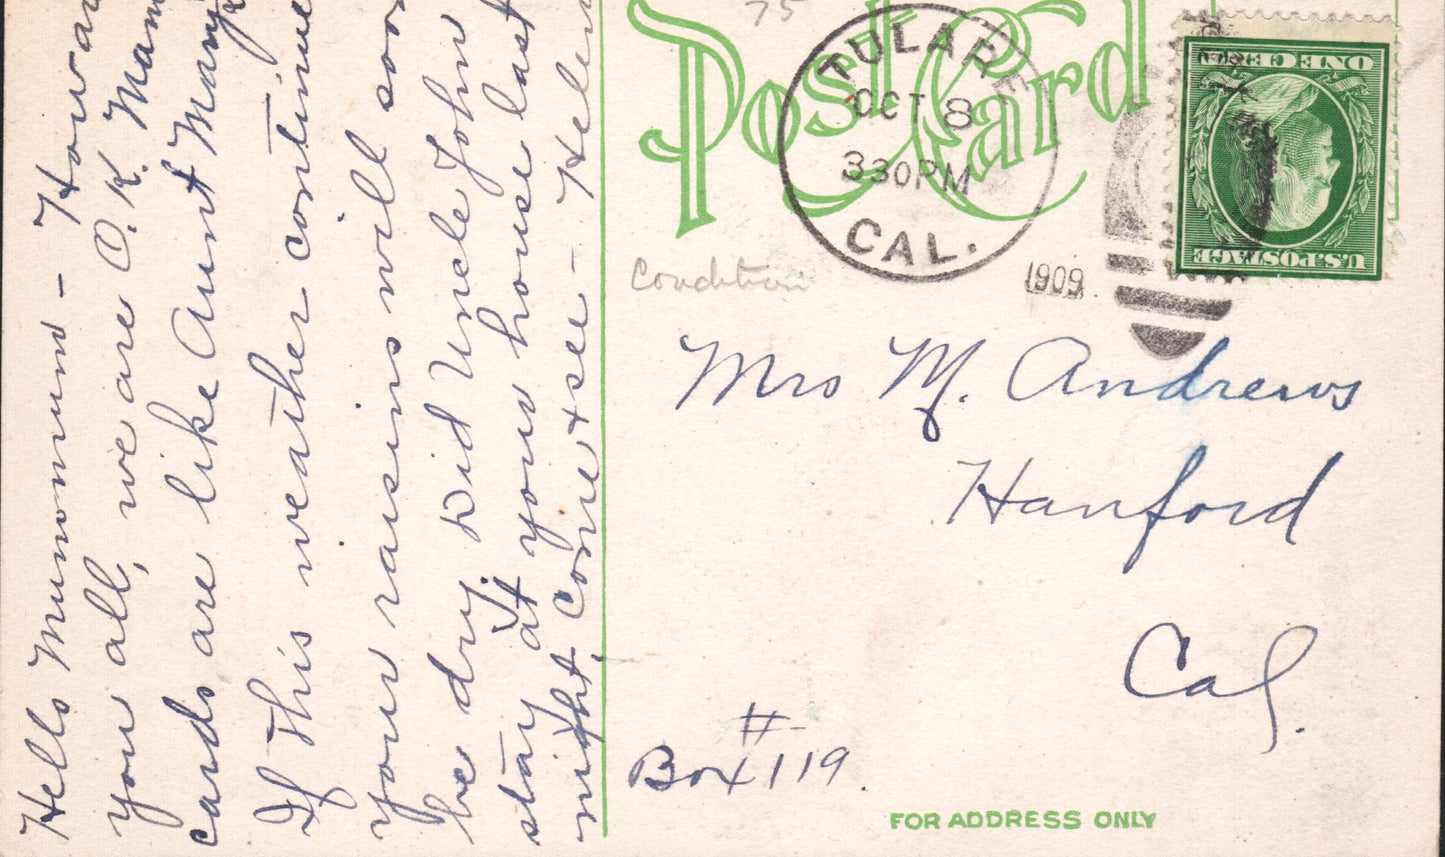 Hello Mumomum - Howar
you all, we are O.K. Mam
cards are like Aunt Mary
If this weather continue
your raisins will soon
be dry. Did Uncle John
stay at your house last
night, Come & see - Helen
75
Post Card
TULARE
OCT 8
330PM
CAL.
1909
ONE CE
U.S. POSTAGE
Condition
Mrs M. Andrews
Hanford
Cal.
#
Box 119
FOR ADDRESS ONLY